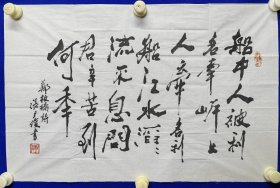 船中人被利
名牽岸上
人牽名利
船江水滔々
流不息問
君辛苦到
何年
鄭板橋詩